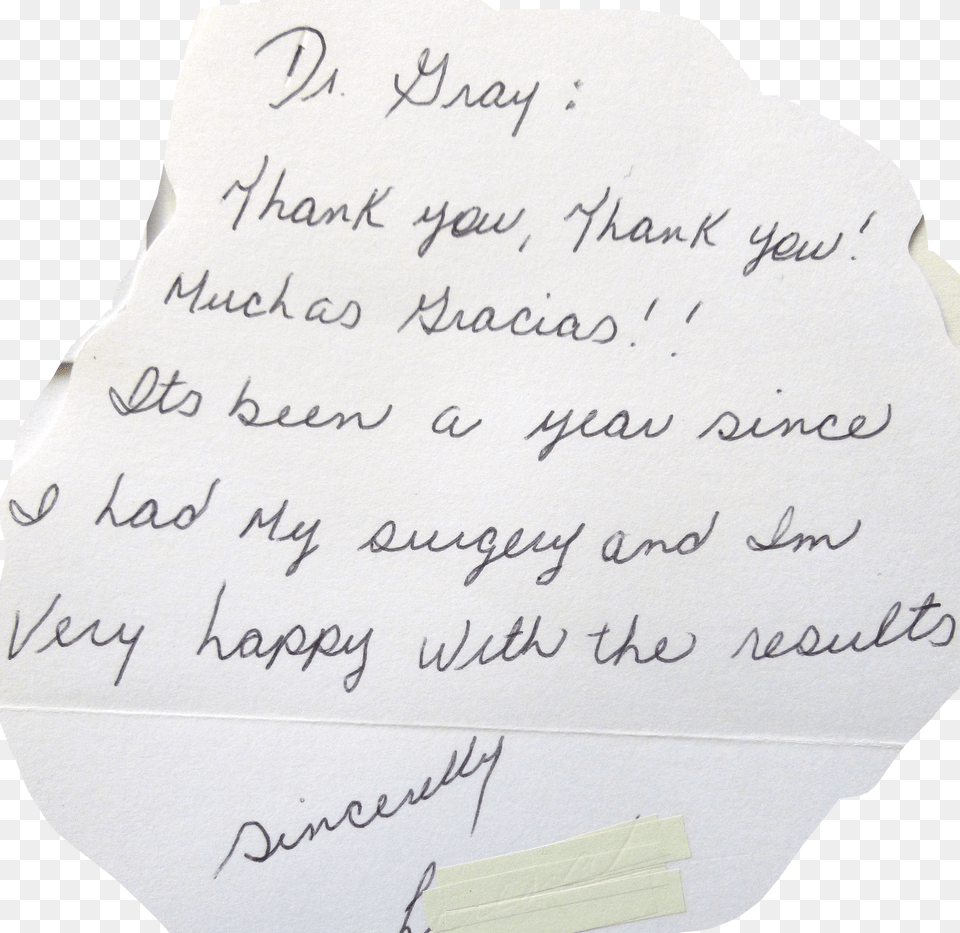 Dr. Gray:
Thank you, Thank you!
Muchas Gracias!!
Its been a year since
I had My surgery and Im
Very happy with the results
sincerelly